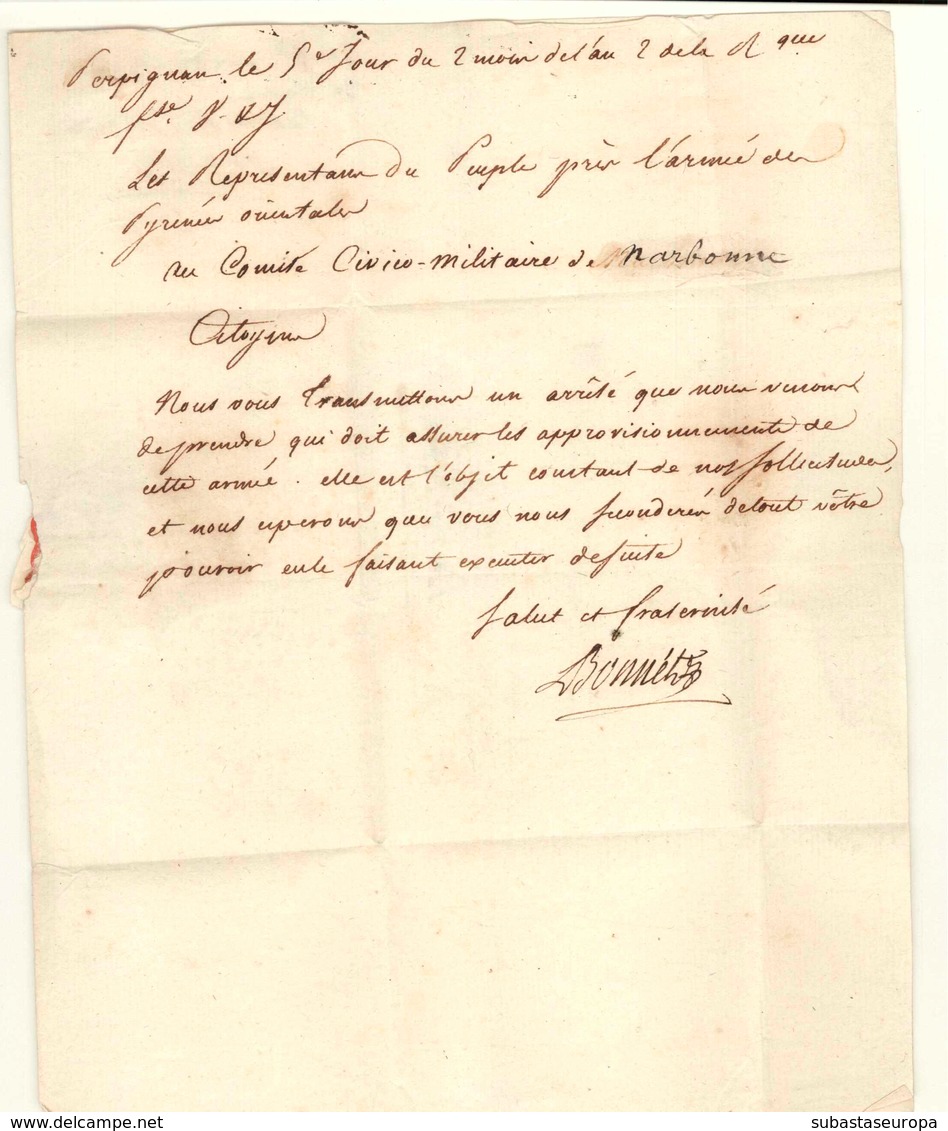 Perpignan le 5e Jour du 2 mois de l'an 2 de la R que
fse.
Les Representans du Peuple près l'armée des
Pyrenées orientales
au Comité Civico-Militaire de Narbonne
Citoyens
Nous vous transmettons un arrêté que nous venons
de prendre qui doit assurer les approvisionnements de
cette armée. elle est l'objet constant de nos sollicitudes,
et nous esperons que vous nous seconderés de tout vôtre
pouvoir en le faisant executer de suite
Salut et fraternité
Bonnet
subastaseuropa